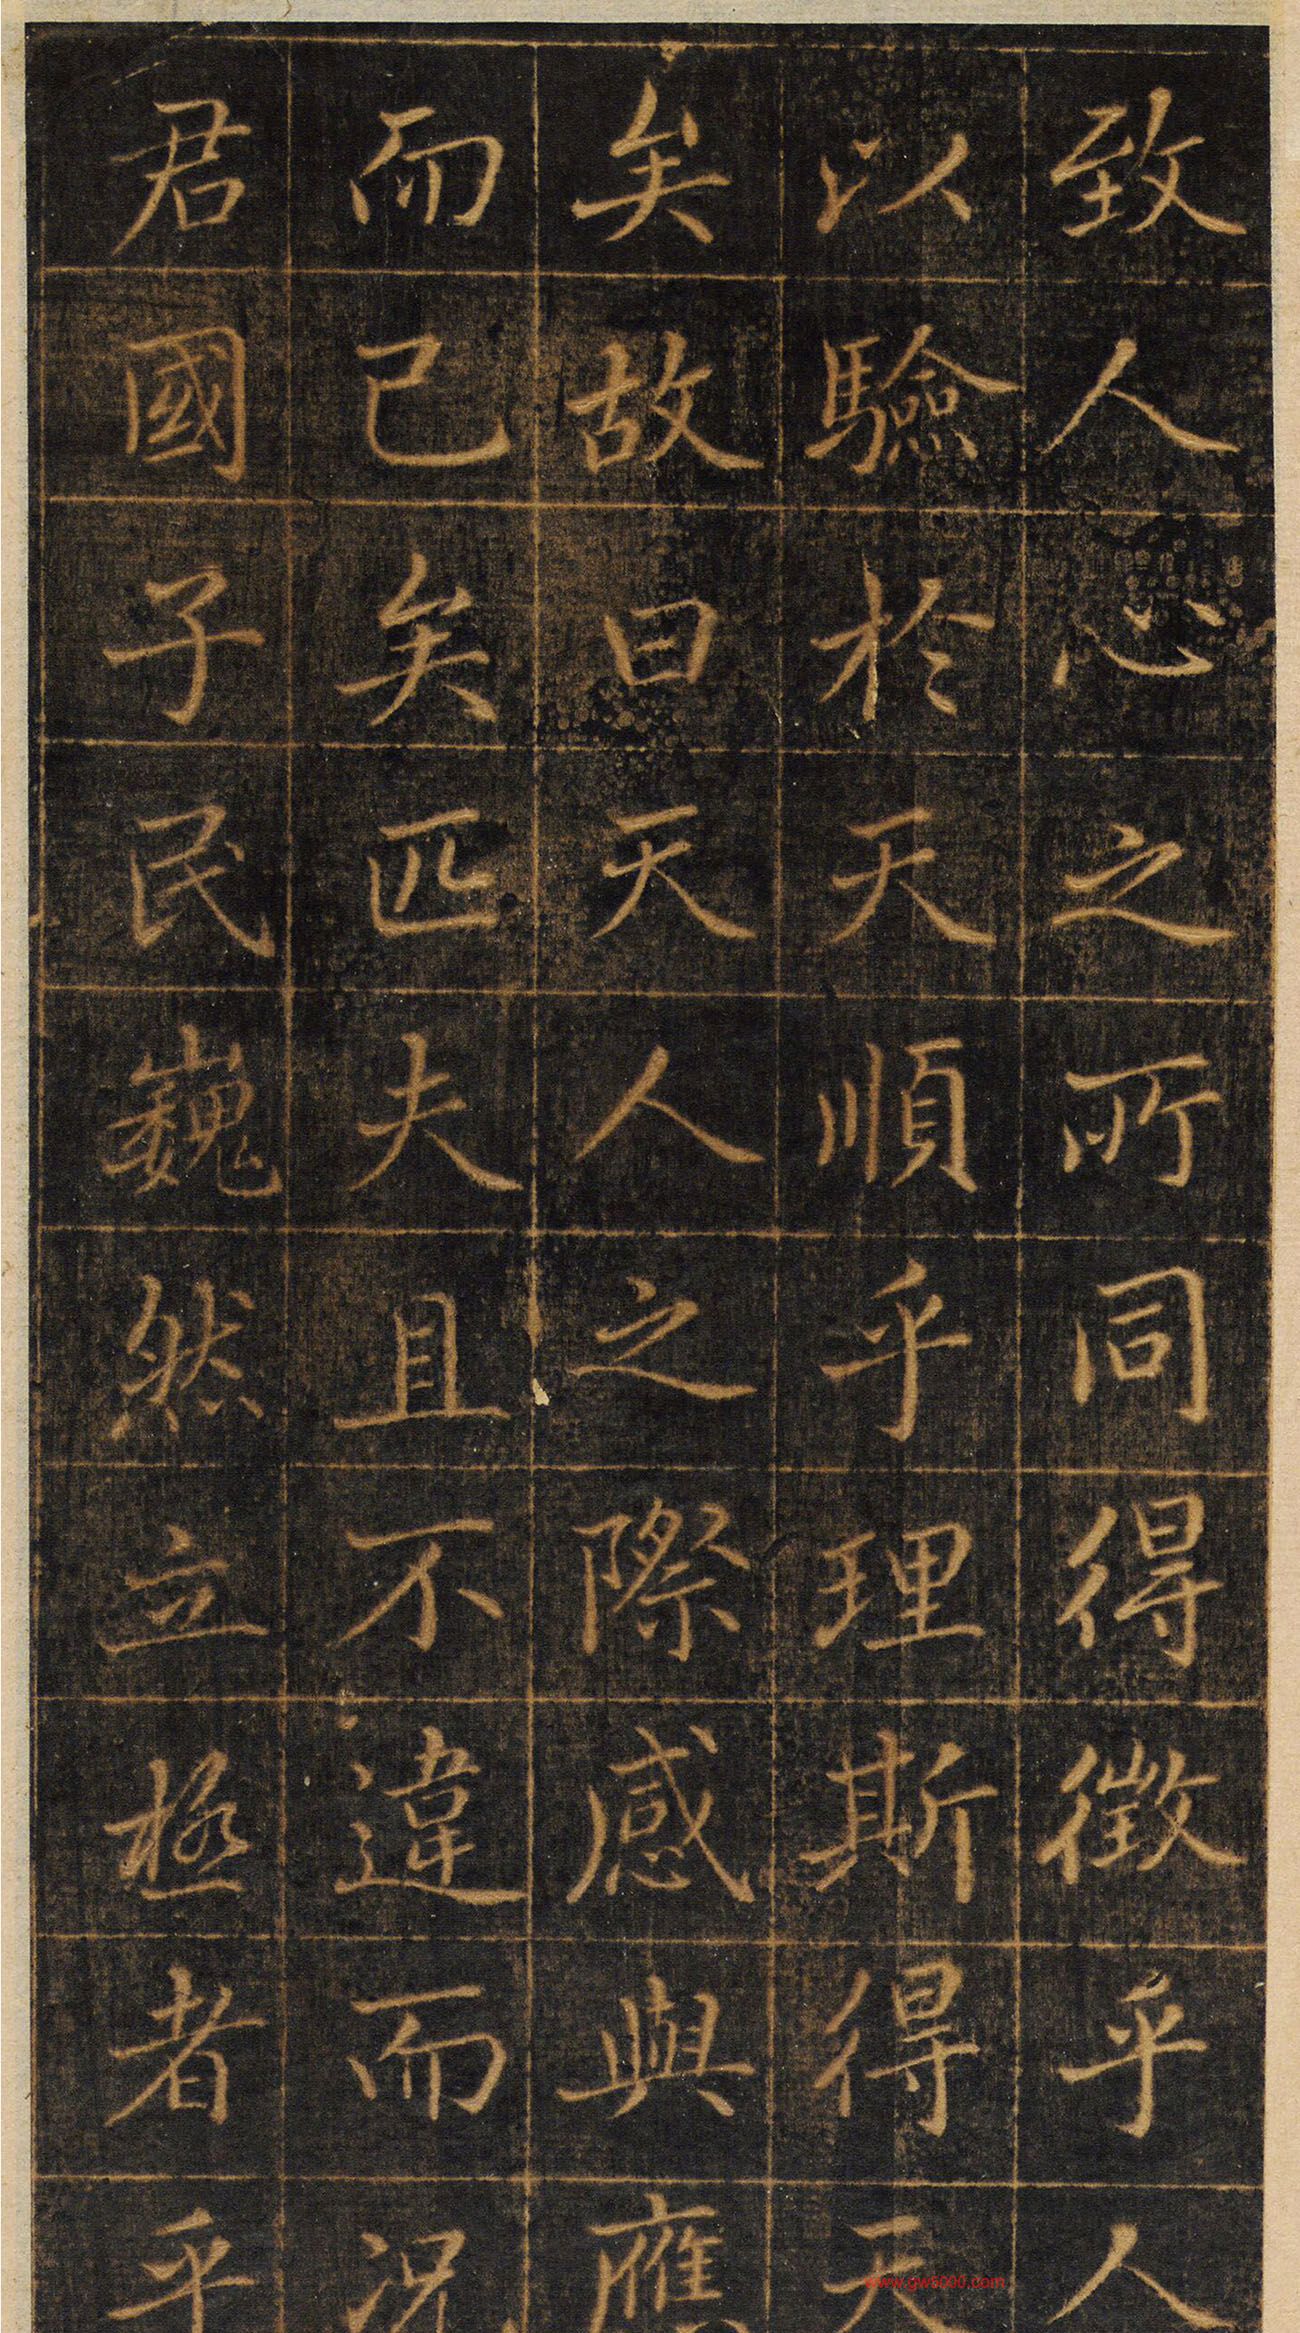 致人心之所同得徵乎人
以驗於天順乎理斯得天
矣故曰天人之際感與應
而已矣匹夫且不違而況
君國子民巍然立極者乎
www.gw8000.com